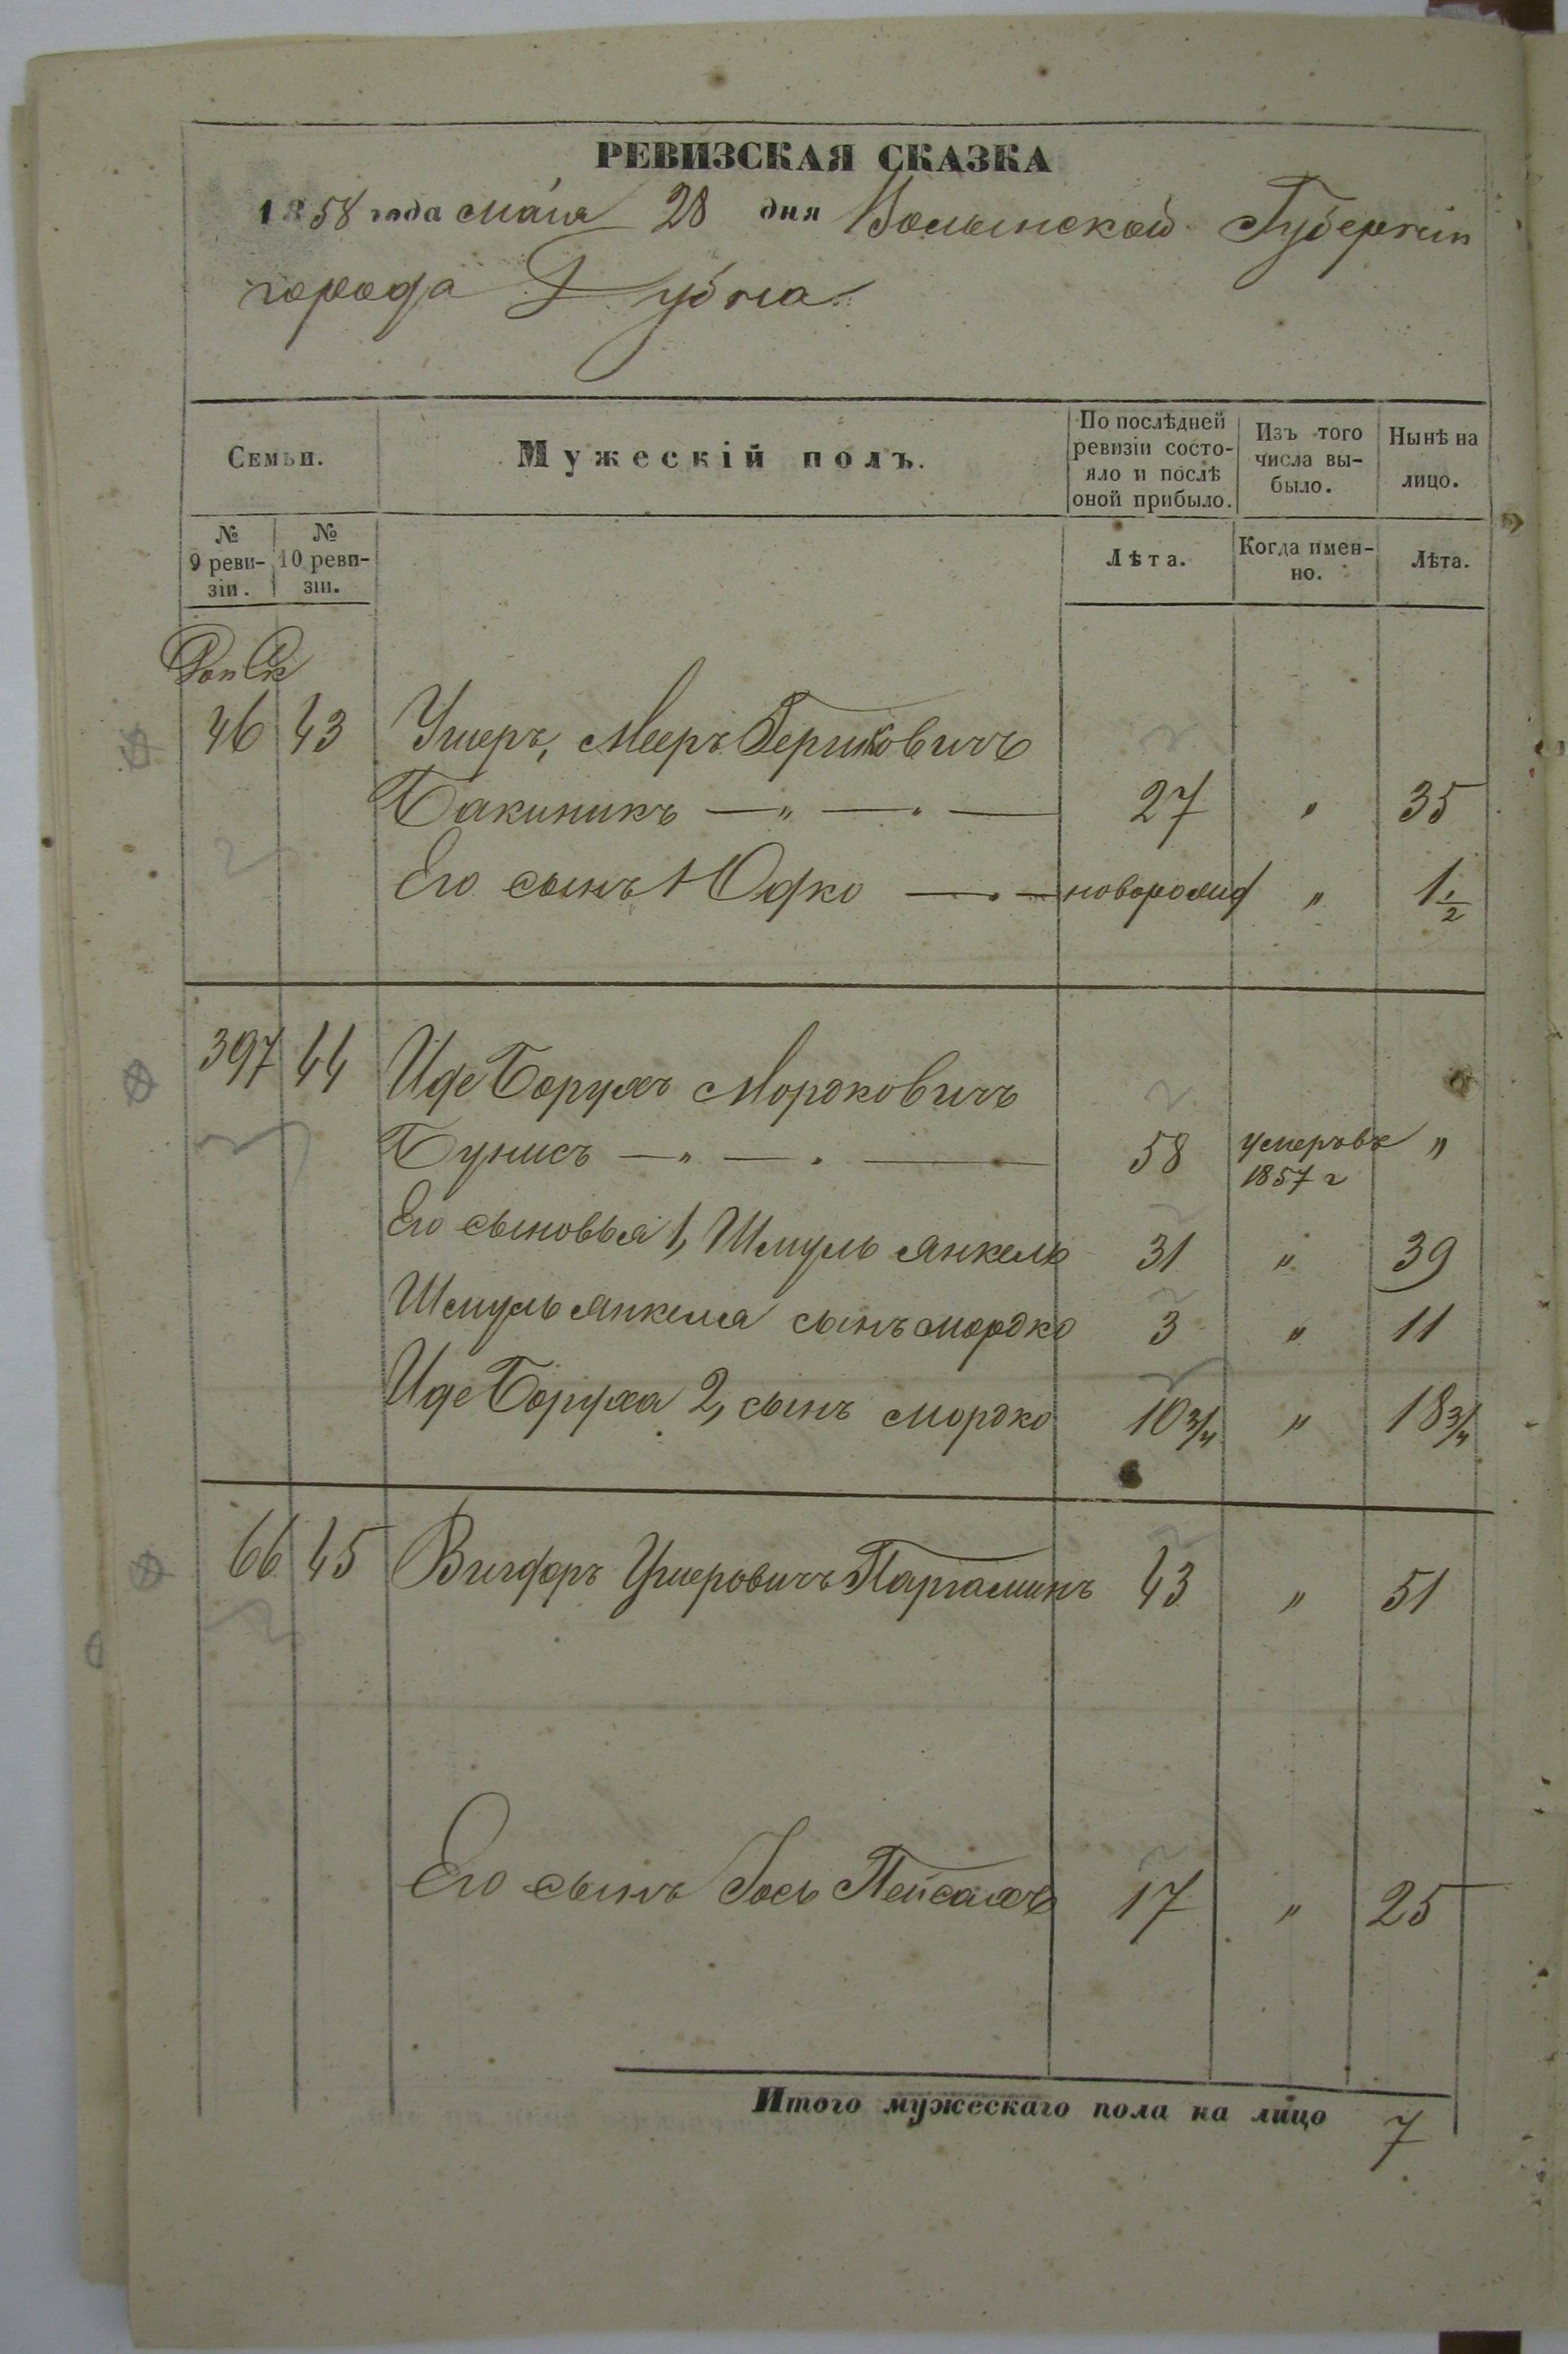 РЕВИЗСКАЯ СКАЗКА
1858 года Маія 28 дня Волынской Губерніи
города Дубна
Семьи.
Мужескій полъ.
По послѣдней ревизіи состо-
яло и послѣ
оной прибыло.
Изъ того
числа вы-
было.
Нынѣ на
лицо.
№
9 реви-
зіи.
№
10 реви-
зіи.
Лѣта.
Когда имен-
но.
Лѣта.
46 43 Ушеръ, Мееръ Берковичъ
Бакиникъ — „ — „ — 27 „ 35
Его сынъ Юдко — „ — новорожд „ 1 1/2
397 44 Иде Борухъ Мордковичъ
Бунисъ — „ — . — 58 умеръ въ „
1857 г
Его сыновья 1, Шмуль Янкель 31 „ 39
Шмуль Янкеля сынъ Мордко 3 „ 11
Иде Боруха 2, сынъ Мордко 10 3/4 „ 18 3/4
66 45 Вигдоръ Ушеровичъ 43 „ 51
Его сынъ Іось Пейсахъ 17 „ 25
Итого мужескаго пола на лицо 7